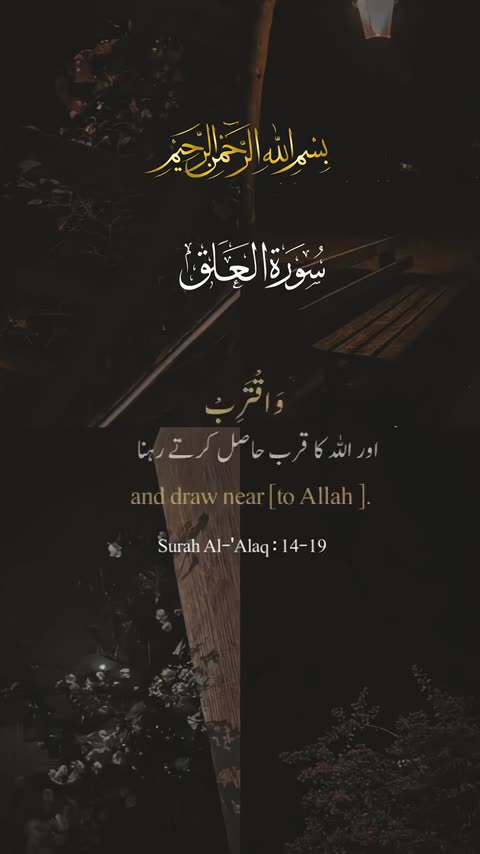 بِسْمِ اللهِ الرَّحْمٰنِ الرَّحِيْمِ
سُورَةُ الْعَلَق
وَاقْتَرِبْ
اور اللہ کا قرب حاصل کرتے رہنا
and draw near [to Allah ].
Surah Al-'Alaq : 14-19